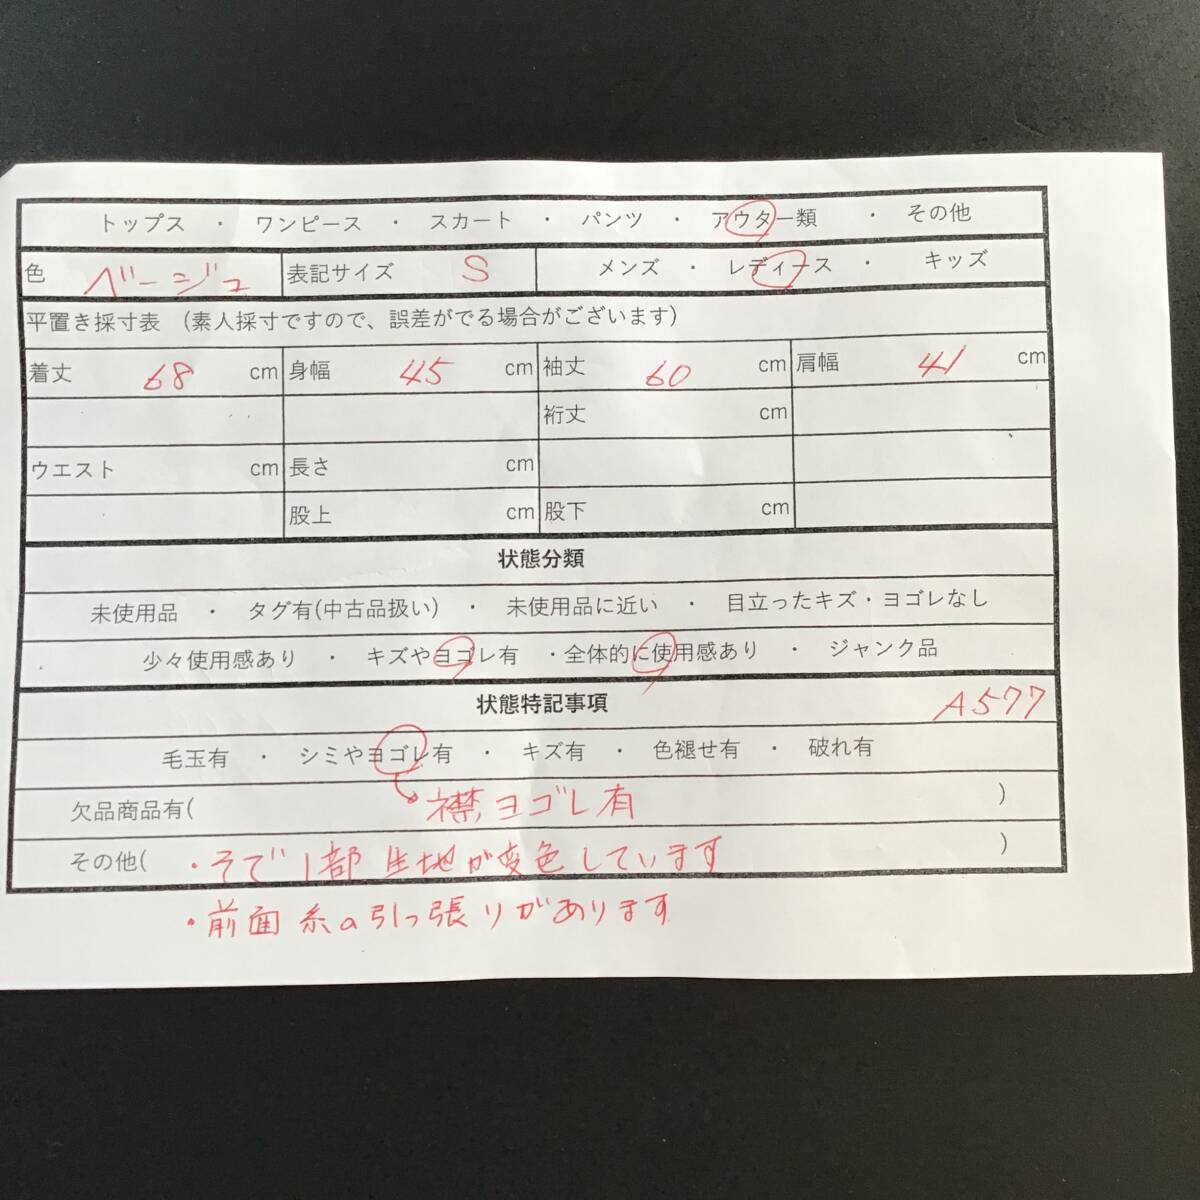 トップス ・ ワンピース ・ スカート ・ パンツ ・ アウター類 ・ その他
色 ベージュ 表記サイズ S メンズ ・ レディース ・ キッズ
平置き採寸表 (素人採寸ですので、誤差がでる場合がございます)
着丈 68 cm 身幅 45 cm 袖丈 60 cm 肩幅 41 cm
裄丈 cm
ウエスト cm 長さ cm
股上 cm 股下 cm
状態分類
未使用品 ・ タグ有(中古品扱い) ・ 未使用品に近い ・ 目立ったキズ・ヨゴレなし
少々使用感あり ・ キズやヨゴレ有 ・全体的に使用感あり ・ ジャンク品
状態特記事項 A577
毛玉有 ・ シミやヨゴレ有 ・ キズ有 ・ 色褪せ有 ・ 破れ有
欠品商品有( 襟,ヨゴレ有 )
その他( ・そで1部生地が変色しています )
・前面糸の引っ張りがあります